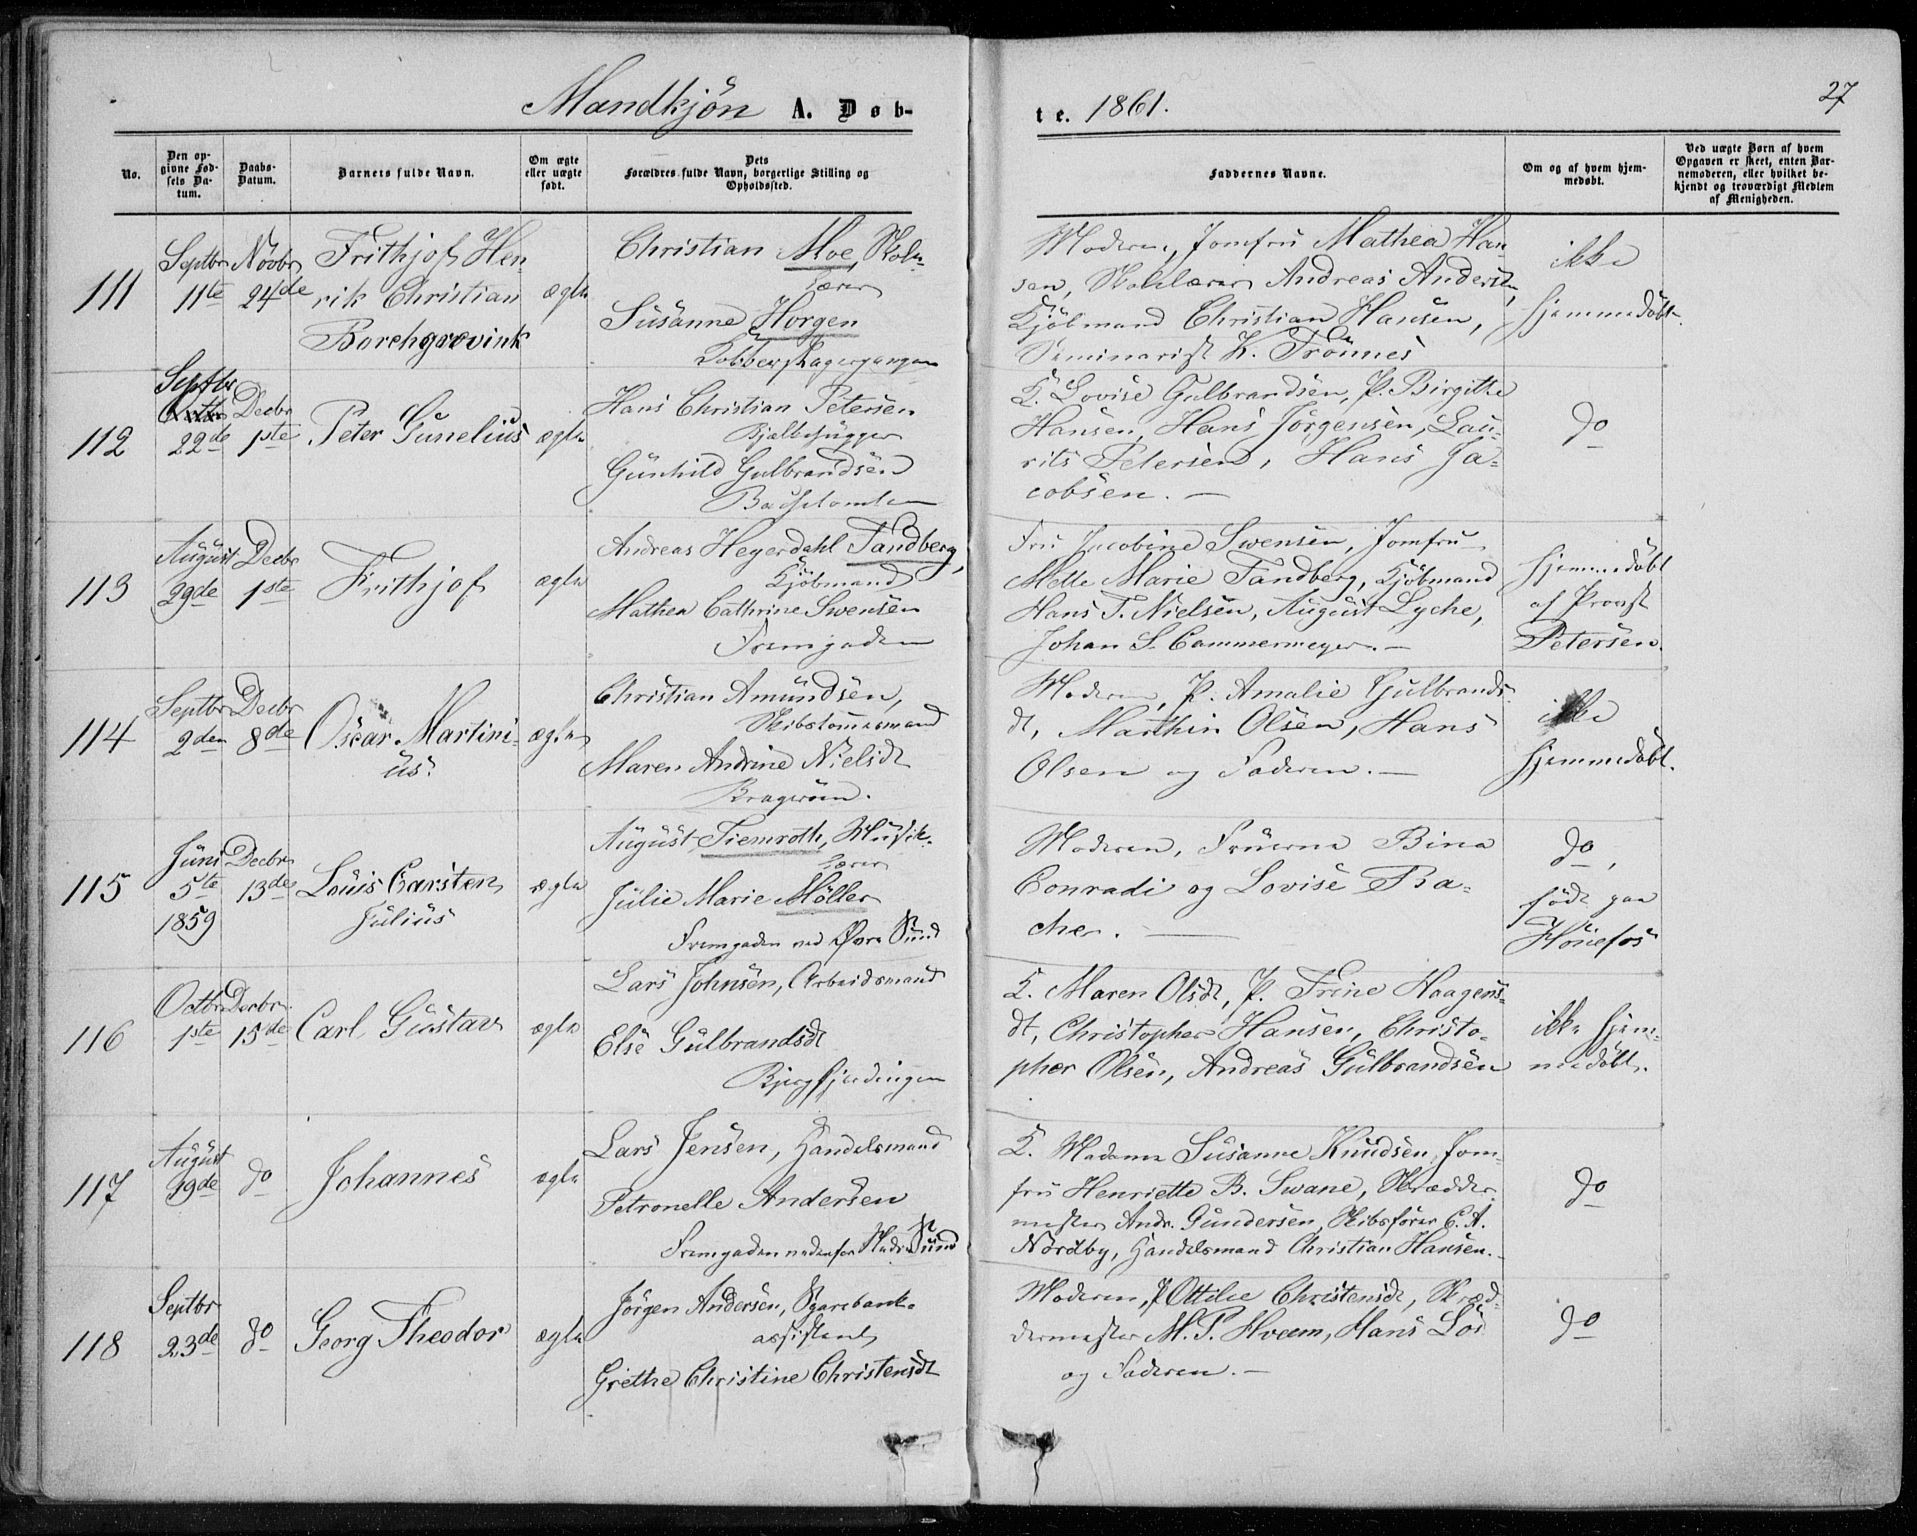 Mandkjön A. Døb-
te. 1861.
27
No.
Den op-
givne Fød-
sels Da-
tum.
Daabs-
Datum.
Barnets fulde Navn.
Om ægte
eller uægte
født.
Dets
Forældres fulde Navn, borgerlige Stilling og
Opholdssted.
Faddernes Navne.
Om og af hvem hjem-
medøbt.
Ved uægte Børn af hvem
Opgaven er skeet, enten Bar-
nemoderen, eller hvilket be-
kjendt og troværdigt Medlem
af Menigheden.
111
Septbr
11te
Novbr
24de
Frithjof Hen-
rik Christian
Borchgrevink
ægte
Christian Moe, Skole-
lærer
Susanne Horgen
Moderen, Jomfru Mathea Han-
sen, Skolelærer Andreas Andersen,
Kjöbmand Christian Hansen,
Seminarist K. Trönnes
ikke
hjemmedöbt.
112
Septbr
22de
Decbr
1ste
Peter Gunelius
ægte
Hans Christian Petersen
Bjælkehugger
Gunhild Gulbrandsen
K. Lovise Gulbrandsen, P. Birgitte
Hansen, Hans Jörgensen, Lau-
rits Petersen, Hans Ja-
cobsen. —
do
113
August
29de
Decbr
1ste
Frithjof
ægte
Andreas Heyerdahl Tandberg,
Kjöbmand
Mathea Cathrine Swensen
Fremgaden
Fru Jacobine Swensen, Jomfru
Mette Marie Tandberg, Kjöbmand
Hans T. Nielsen, August Lyche,
Johan S. Cammermeyer. —
hjemmedöbt
af Provst
Petersen.
114
Septbr
2den
Decbr
8de
Oscar Martini-
us.
ægte
Christian Amundsen,
Skibstömmermand
Maren Andrine Nielsdt
Bragerøen.
Moderen, P. Amalie Gulbrands-
dt, Marthin Olsen, Hans
Olsen og Faderen. —
ikke
hjemmedöbt.
115
Juni
5te
1859
Decbr
13de
Louis Carsten
Julius
ægte
August Tiemroth, Musik-
lærer
Julie Marie Möller
Fremgaden ved Øvre Sund
Moderen, Fruerne Bina
Conradi og Lovise Ba-
cher. —
do,
födt paa
Hönefos
116
Octbr
1ste
Decbr
15de
Carl Gustav
ægte
Lars Johnsen, Arbeidsmand
Else Gulbrandsdt
Bjergfjerdingen
K. Maren Olsdt, P. Trine Haagens-
dt, Christopher Hansen, Christo-
pher Olsen, Andreas Gulbrandsen
ikke hjem-
medöbt.
117
August
19de
do
Johannes
ægte
Lars Jensen, Handelsmand
Petronelle Andersen
Fremgaden nedenfor Nedre Sund
K. Madame Susanne Knudsen, Jom-
fru Henriette B. Swane, Skrædder-
mester Andr. Gundersen, Skibsförer C. A.
Nordby, Handelsmand Christian Hansen. —
do
118
Septbr
23de
do
Georg Theodor
ægte
Jörgen Andersen, Sparebank-
assistent
Grethe Christine Christensdt
Moderen, P Ottilie Christensdt, Skræd-
dermester M. P. Hveem, Hans Löo
og Faderen. —
do